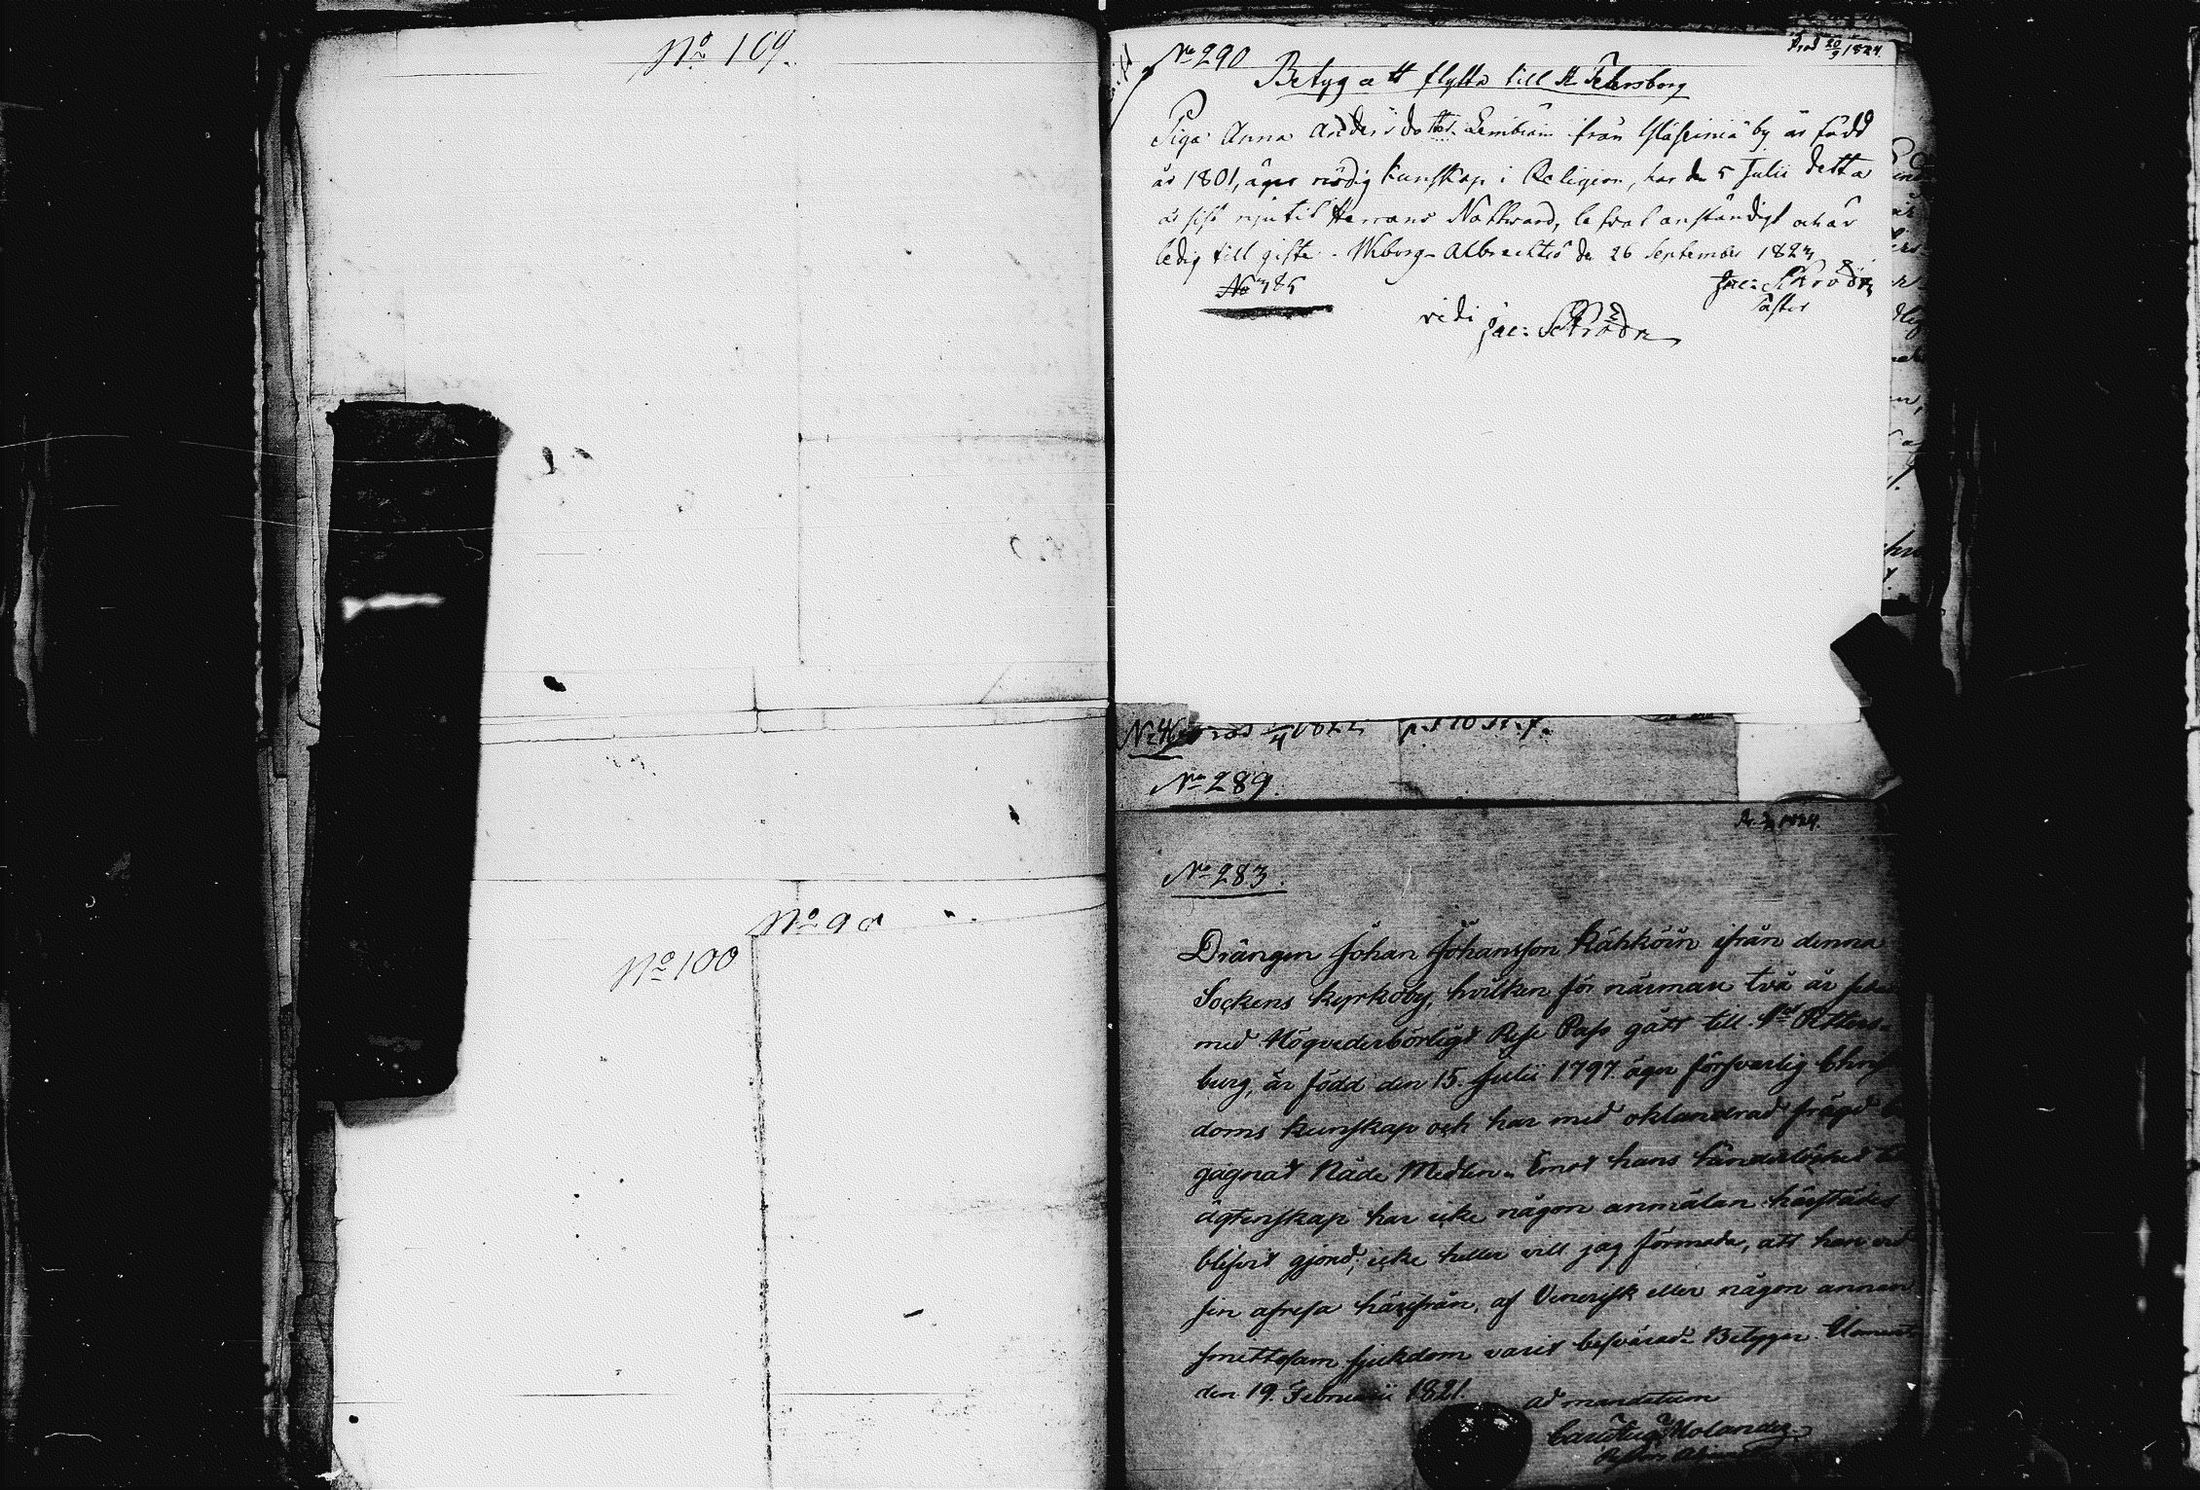 No 109.
No 90
No 100
No 290
Prod 20/9 1824.
Betyg att flytta till St Petersborg
Piga Anna Andersdotter från by är född
år 1801, äger nödig kunskap i Religion, har den 5 Julii detta
år sist njutit Herrans Nattvard, lefvat anständigt och är
ledig till gifte. Wiborg Albrechtis den 26 September 1823
No 385
Jac: Schröder
Paster
vidi Jac: Schröder
No 289.
No 283.
1824.
Drängen Johan Johansson Kähköin ifrån denna
Sockens kyrkoby, hvilken för närmare två år
med Högvederbörligt Rese Pass gått till St Petters-
burg, är född den 15. Julii 1797. äger försvarlig Chris
doms kunskap och har med oklandrad frägd
gagnat Nåde Medlen. Emot hans hinderlöshet
ägtenskap har icke någon anmälan härstädes
blifvit gjord; icke heller vill jag förmoda, att han vid
sin afresa härifrån, af Venerisk eller någon annan
smittosam sjukdom varit besvärad. Betygar
den 19. Februarii 1821.
ad mandatum
Molander